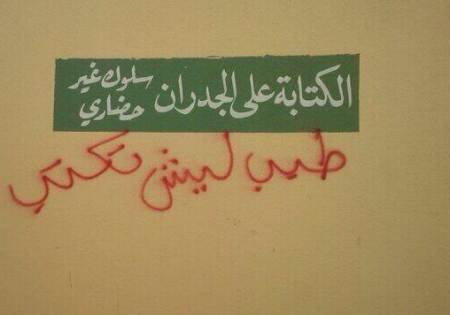 الكتابة على الجدران سلوك غير
حضاري
طيب ليش تكتب